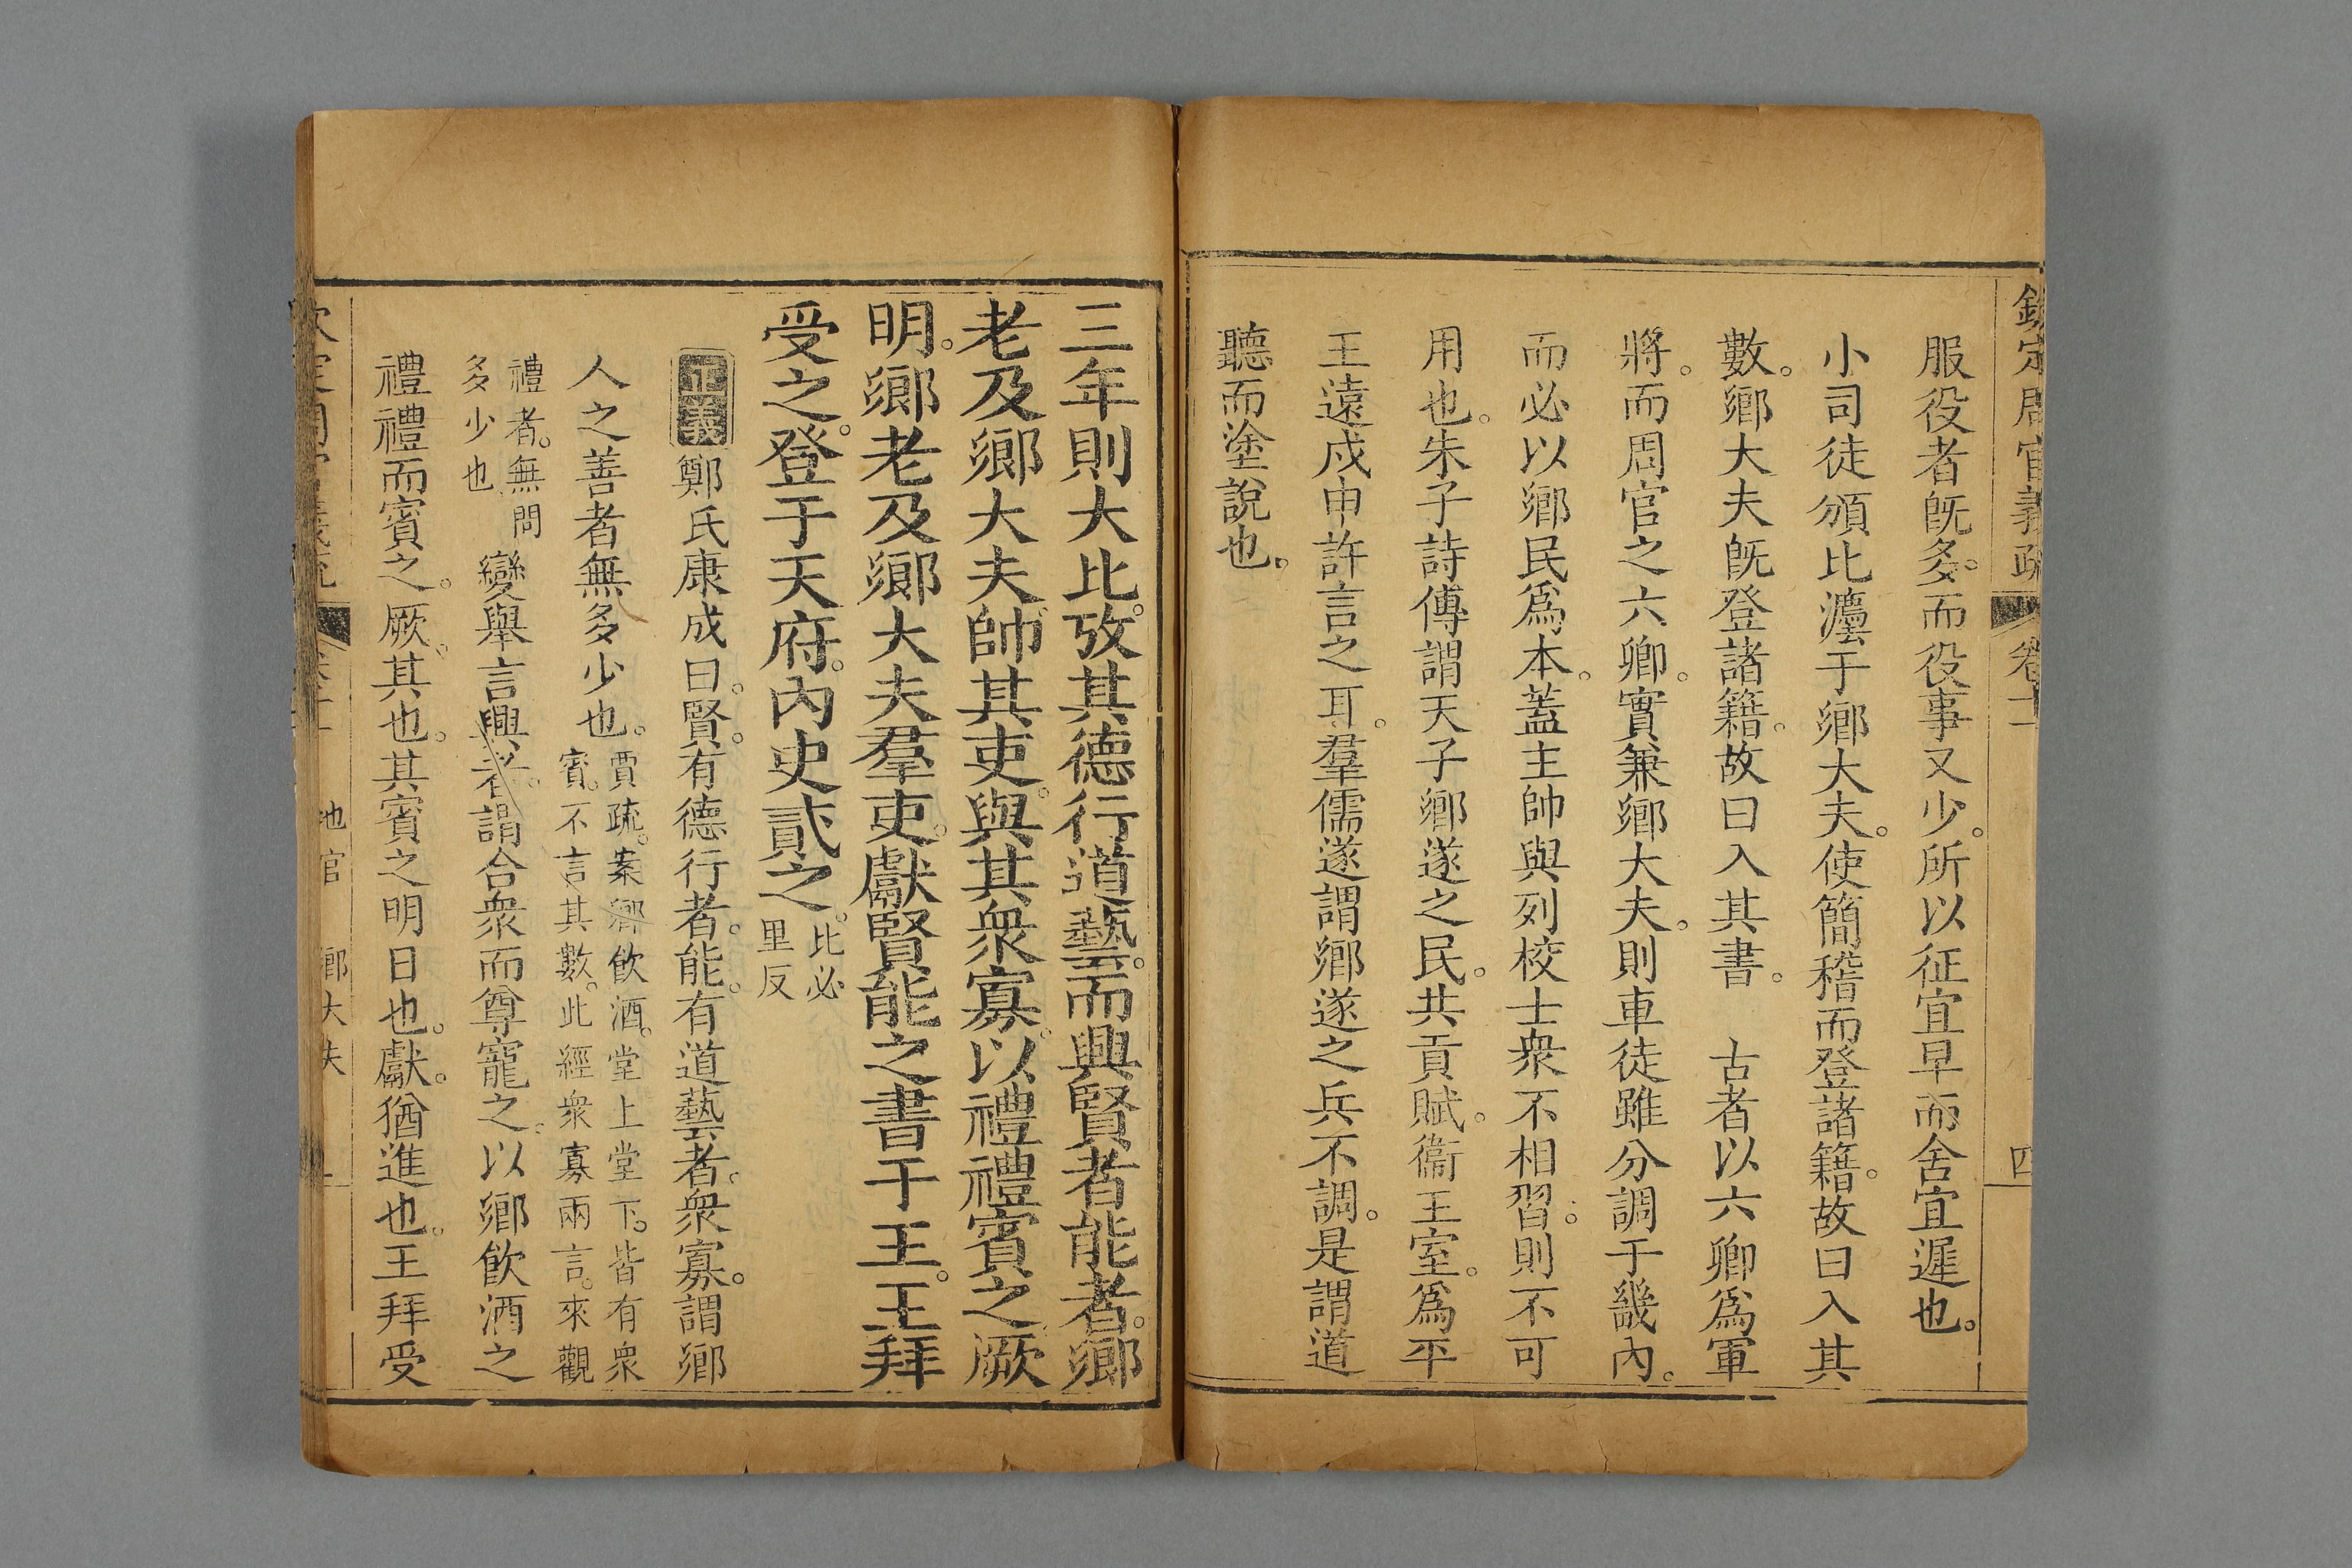 欽定周官義疏 卷十一 四
服役者旣多。而役事又少。所以征宜早而舍宜遲也。
小司徒頒比灋于鄕大夫。使簡稽而登諸籍。故曰入其
數。鄕大夫旣登諸籍。故曰入其書。 古者以六卿爲軍
將。而周官之六卿。實兼鄕大夫。則車徒雖分調于畿內。
而必以鄕民爲本。蓋主帥與列校士衆不相習。則不可
用也。朱子詩傳謂天子鄕遂之民。共貢賦。衞王室。爲平
王遠戍申許言之耳。羣儒遂謂鄕遂之兵不調。是謂道
聽而塗說也。
三年則大比。攷其德行道藝。而興賢者能者。鄕
老及鄕大夫。帥其吏。與其衆寡。以禮禮賓之。厥
明。鄕老及鄕大夫羣吏。獻賢能之書于王。王拜
受之。登于天府。內史貳之。比必
里反
正義鄭氏康成曰。賢。有德行者。能。有道藝者。衆寡。謂鄕
人之善者無多少也。賈疏。案鄕飮酒。堂上堂下。皆有衆
賓。不言其數。此經衆寡兩言。來觀
禮者。無問
多少也 變舉言興者。謂合衆而尊寵之。以鄕飮酒之
禮禮而賓之。厥。其也。其賓之明日也。獻。猶進也。王拜受
地官 鄕大夫